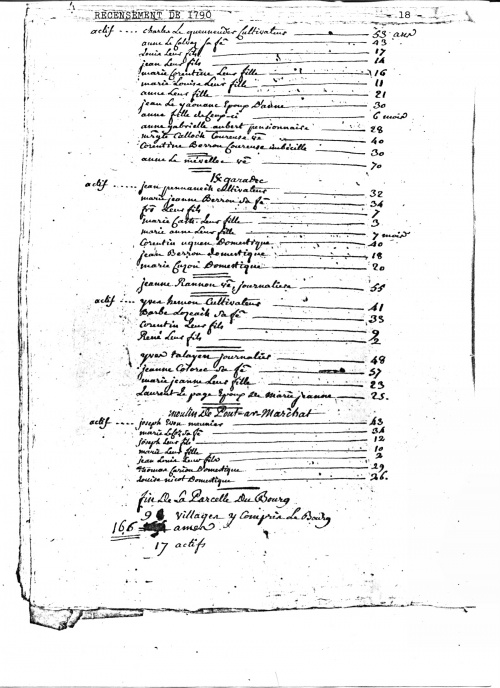 RECENSEMENT DE 1790 - 18 -
actif .... charles Le quenneudec Cultivateur 53 ans
anne Le Calvez sa fe 43
Louis Leur fils 17
jean Leur fils 14
marie Corentine Leur fille 16
marie Louise Leur fille 11
anne Leur fille 21
jean Le yaouanc Epoux D'anne 30
anne fille de Ceux-ci 6 mois
anne gabrielle aubert pensionnaire 28
Coureuse ve 40
Corentine Berrou Coureuse imbécille 30
anne Le ve 70
garadec
actif ..... jean pennaneach Cultivateur 32
marie jeanne Berrou sa fe 34
frs Leur fils 7
marie Cath. Leur fille 3
marie anne Leur fille 7 mois
Corentin uguen Domestique 40
jean Berrou Domestique 18
marie Domestique 20
jeanne Rannou ve journaliere 55
actif .... yves hemon Cultivateur 41
Barbe sa fe 33
Corentin Leur fils 9
René Leur fils 2
yves talayen journalier 48
jeanne sa fe 57
marie jeanne Leur fille 23
Laurent Le page Epoux de marie jeanne 25
moulin De Pont-an-Marchat
actif ..... joseph Even meunier 43
marie sa fe 34
joseph Leur fils 12
marie Leur fille 10
jean Louis Leur fils 3
thomas Cariou Domestique 29
Louise nicot Domestique 26
fin De La Parcelle Du Bourg
9 villages y Compris Le Bourg
166 ames
17 actifs